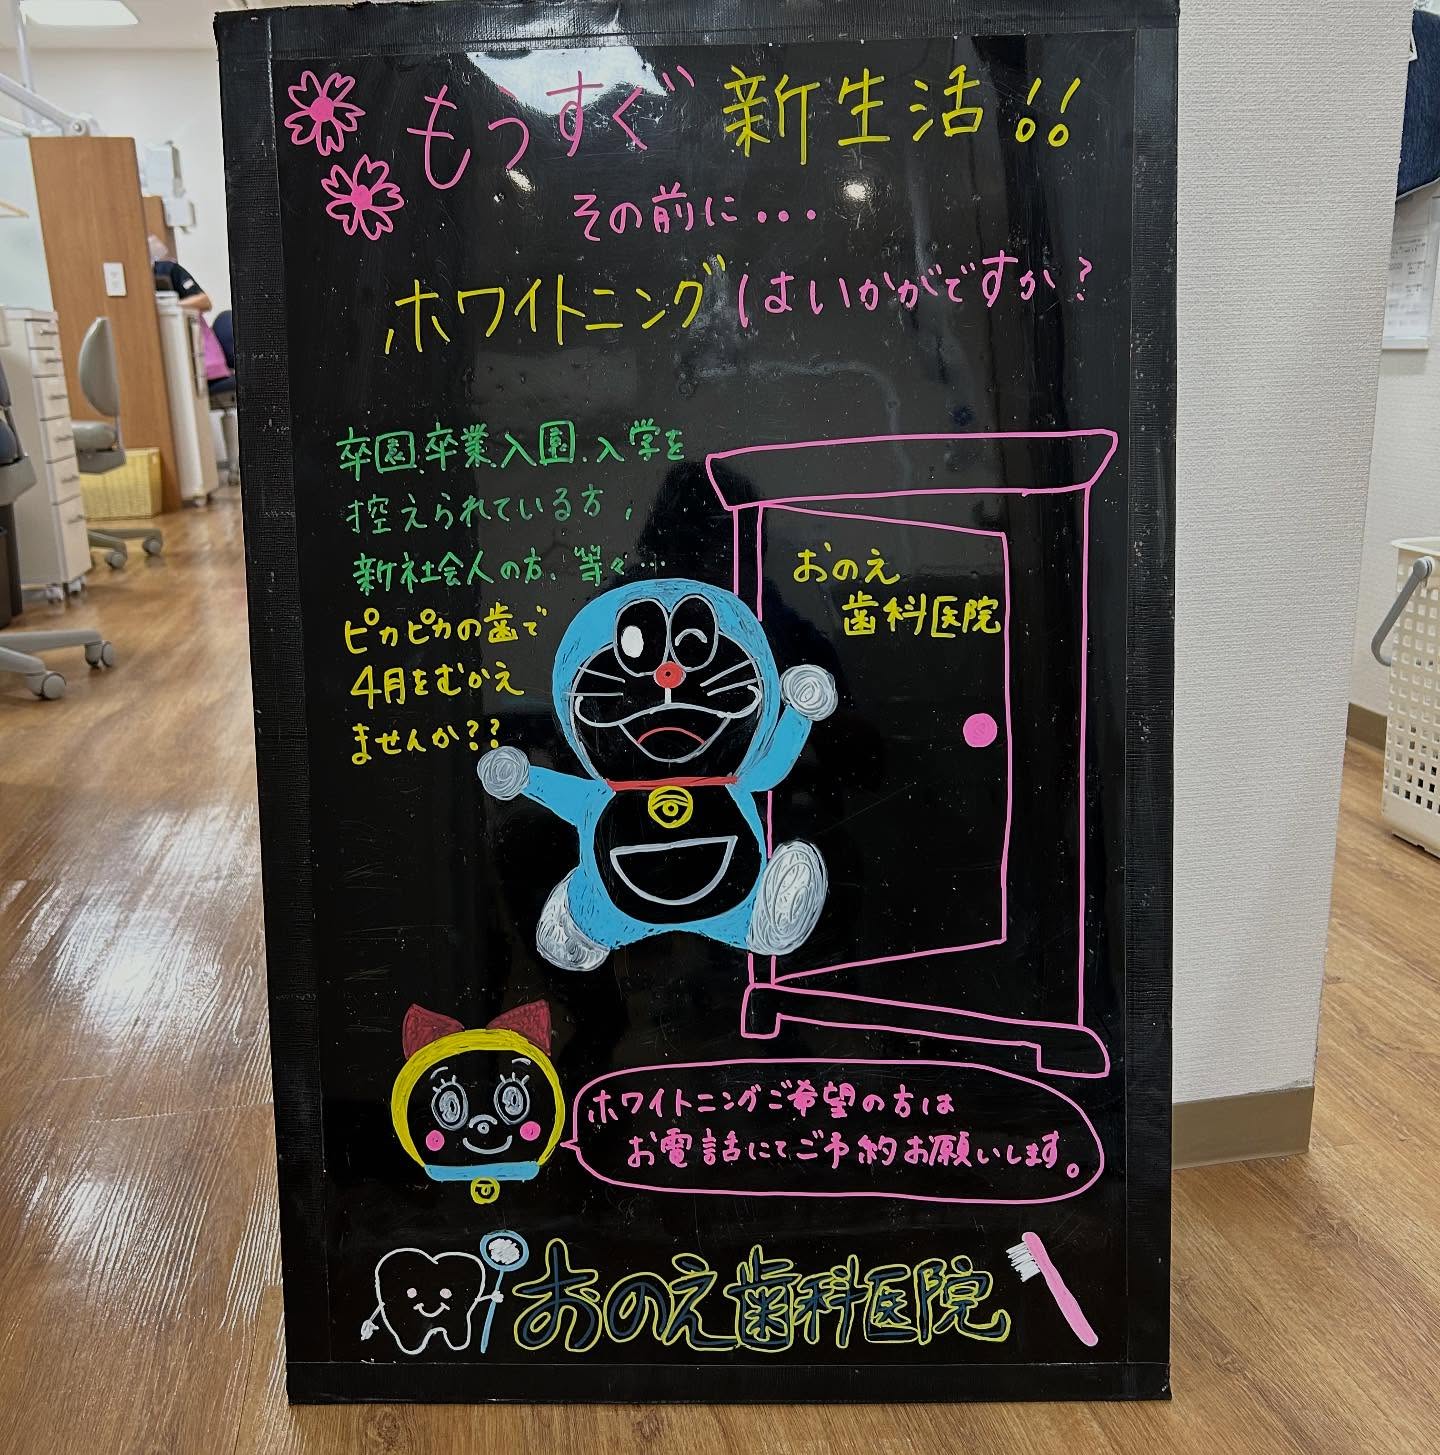 もうすぐ 新生活!!
その前に...
ホワイトニングはいかがですか?
卒園.卒業.入園.入学を
控えられている方,
新社会人の方、等々...
ピカピカの歯で
4月をむかえ
ませんか??
おのえ
歯科医院
ホワイトニングご希望の方は
お電話にてご予約お願いします。
おのえ歯科医院